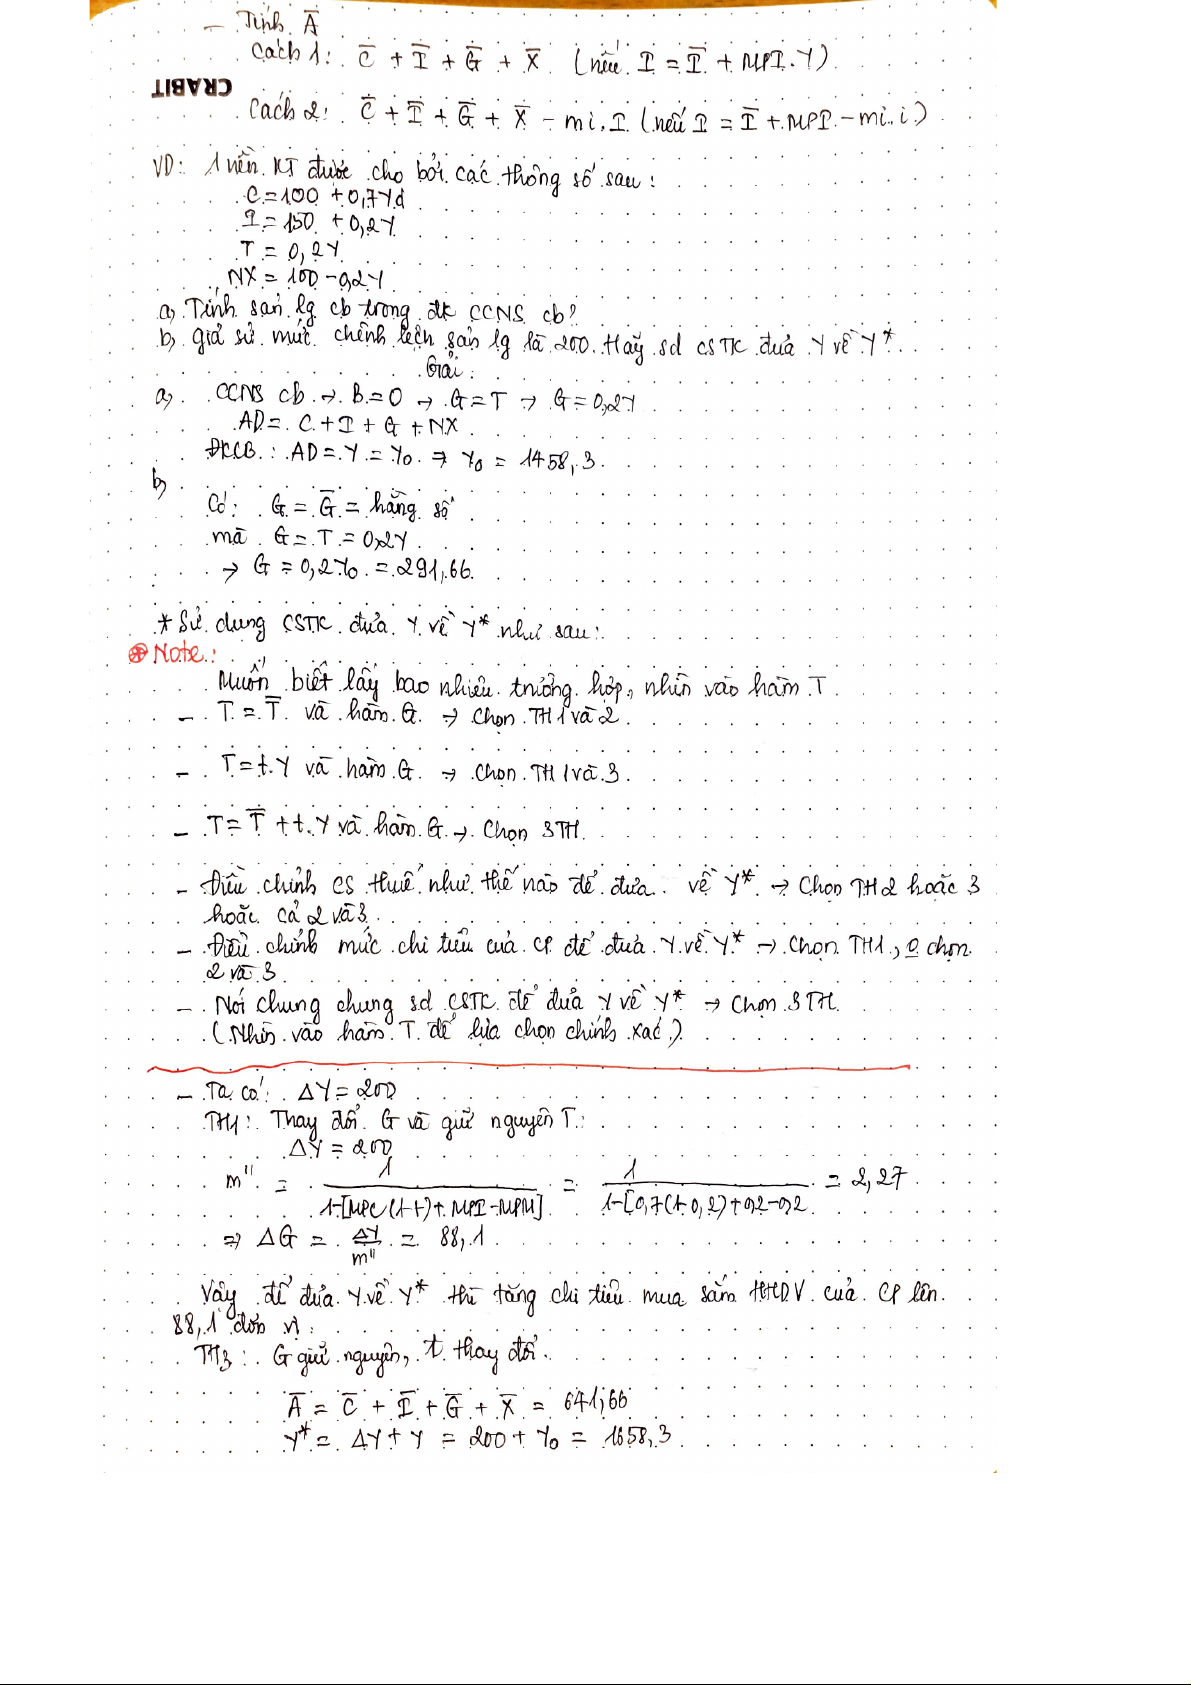 - Tính Ā
Cách 1: C̄ + Ī + Ḡ + X̄ (nếu I = Ī + MPI.Y)
CRABIT
Cách 2: C̄ + Ī + Ḡ + X̄ - mi.I (nếu I = Ī + MPI - mi.i)
VD: 1 nền KT được cho bởi các thông số sau:
C = 100 + 0,7Yd
I = 150 + 0,2Y
T = 0,2Y
NX = 100 - 0,2Y
a, Tính sản lg cb trong đk CCNS cb?
b, giả sử mức chênh lệch sản lg là 200. Hãy sd CSTK đưa Y về Y*
Giải:
a, CCNS cb → B = 0 → G = T → G = 0,2Y
AD = C + I + G + NX
ĐKCB: AD = Y = Y₀ ⇒ Y₀ = 1458,3
b,
Có: G = Ḡ = hằng số
mà G = T = 0,2Y
→ G = 0,2Y₀ = 291,66
* Sử dụng CSTK đưa Y về Y* như sau:
⊛ Note:
Muốn biết lấy bao nhiêu trường hợp, nhìn vào hàm T
- T = T̄ và hàm G → Chọn TH1 và 2
- T = t.Y và hàm G → Chọn TH 1 và 3
- T = T̄ + t.Y và hàm G → Chọn 3TH
- Điều chỉnh CS thuế như thế nào để đưa về Y* → Chọn TH2 hoặc 3
hoặc cả 2 và 3
- Điều chỉnh mức chi tiêu của CP để đưa Y về Y* → Chọn TH1, o chọn
2 và 3
- Nói chung chung sd CSTK để đưa Y về Y* → Chọn 3TH
(Nhìn vào hàm T để lựa chọn chính xác)
- Ta có: ΔY = 200
TH1: Thay đổi G và giữ nguyên T:
ΔY = 200
m'' = 1 / 1-[MPC(1-t)+MPI-MPM] = 1 / 1-[0,7(1-0,2)+0,2-0,2 = 2,27
⇒ ΔG = ΔY / m'' = 88,1
Vậy để đưa Y về Y* thì tăng chi tiêu mua sắm HHDV của CP lên
88,1 đơn vị
TH3: G giữ nguyên, t thay đổi
Ā = C̄ + Ī + Ḡ + X̄ = 641,66
Y* = ΔY + Y = 200 + Y₀ = 1658,3